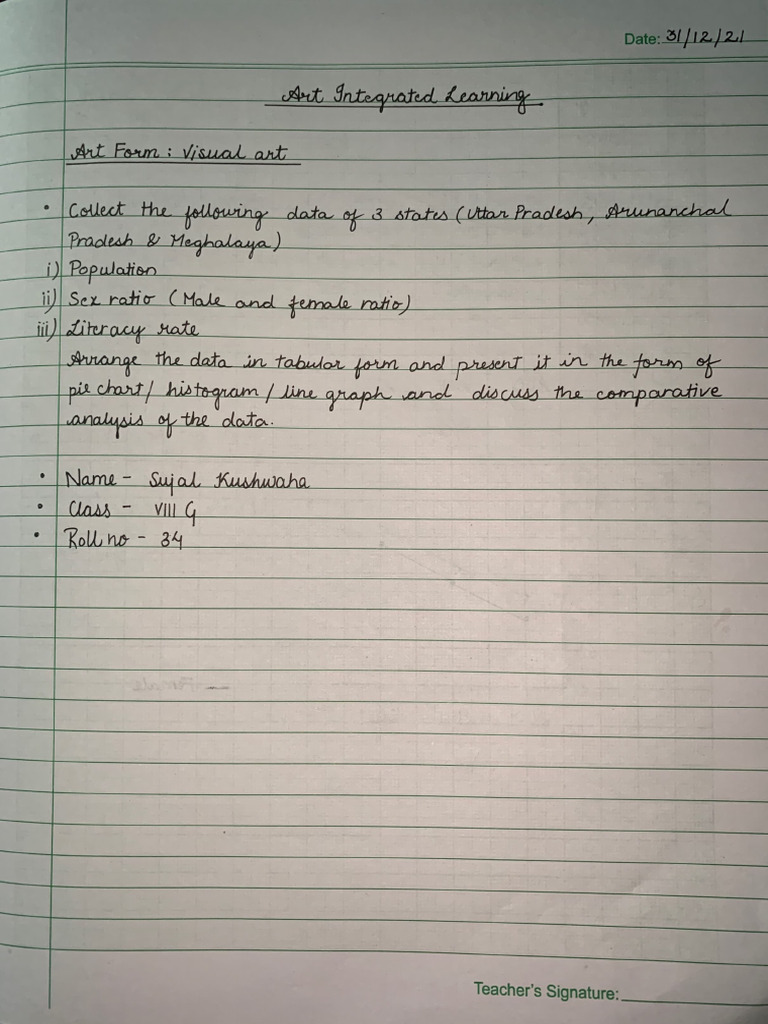 Date: 31/12/21
Art Integrated Learning
Art Form : Visual art
• Collect the following data of 3 states (Uttar Pradesh, Arunanchal
Pradesh & Meghalaya)
i) Population
ii) Sex ratio (Male and female ratio)
iii) Literacy rate
Arrange the data in tabular form and present it in the form of
pie chart/ histogram / line graph and discuss the comparative
analysis of the data.
• Name - Sujal Kushwaha
• Class - VIII G
• Roll no - 34
Teacher's Signature: